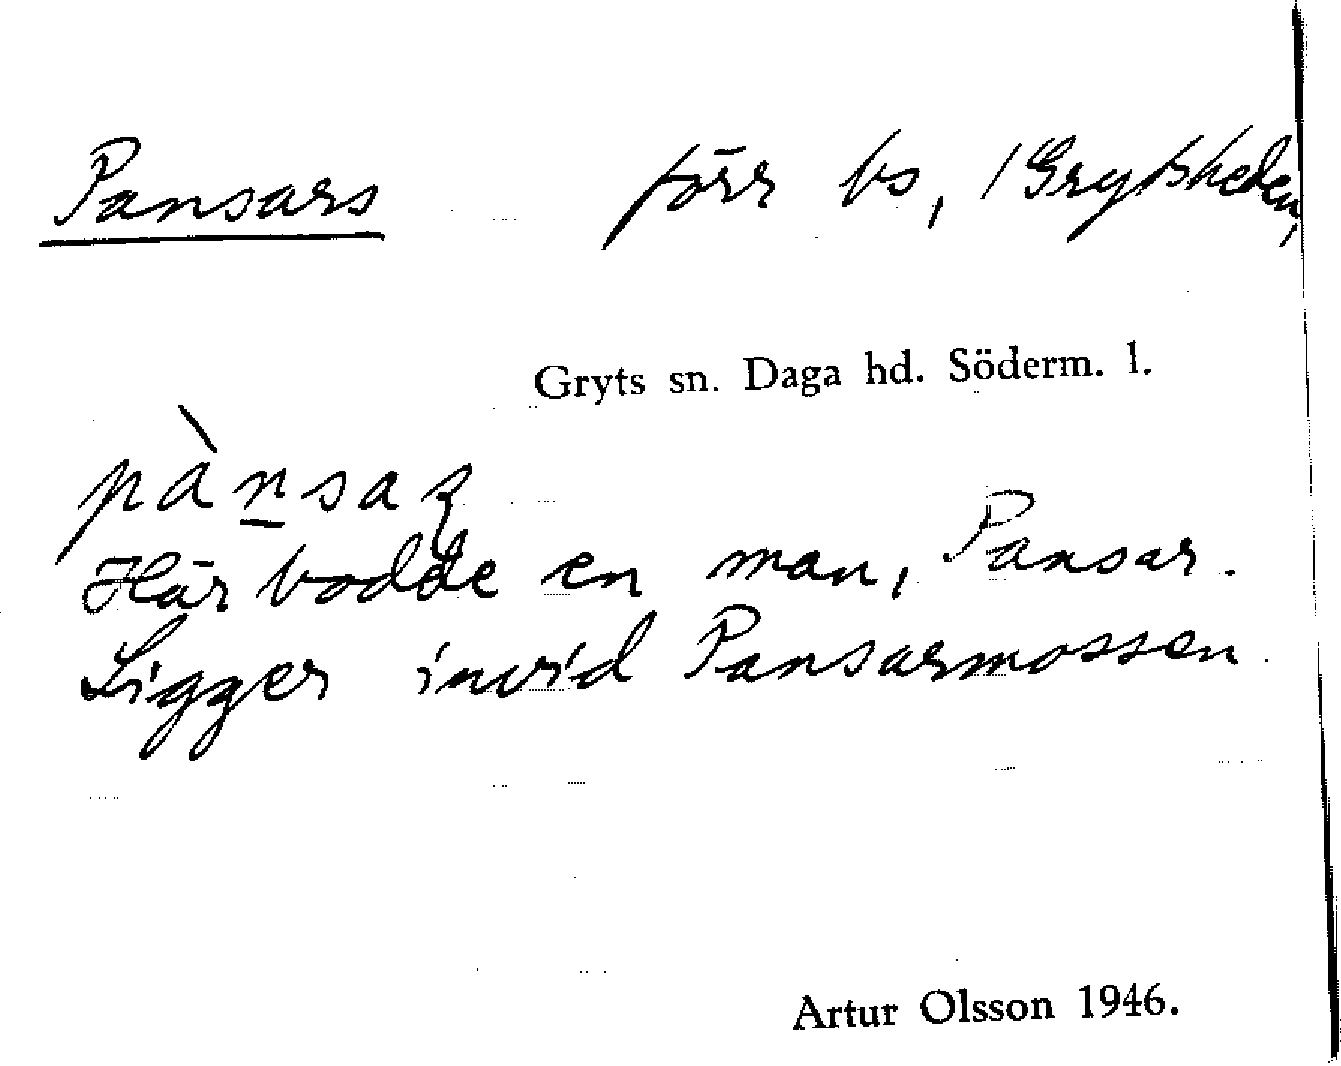 Pansars förr bs, / Grytsheden,
Gryts sn. Daga hd. Söderm. l.
pànsaʂ
Här bodde en man, Pansar.
Ligger invid Pansarmossen.
Artur Olsson 1946.